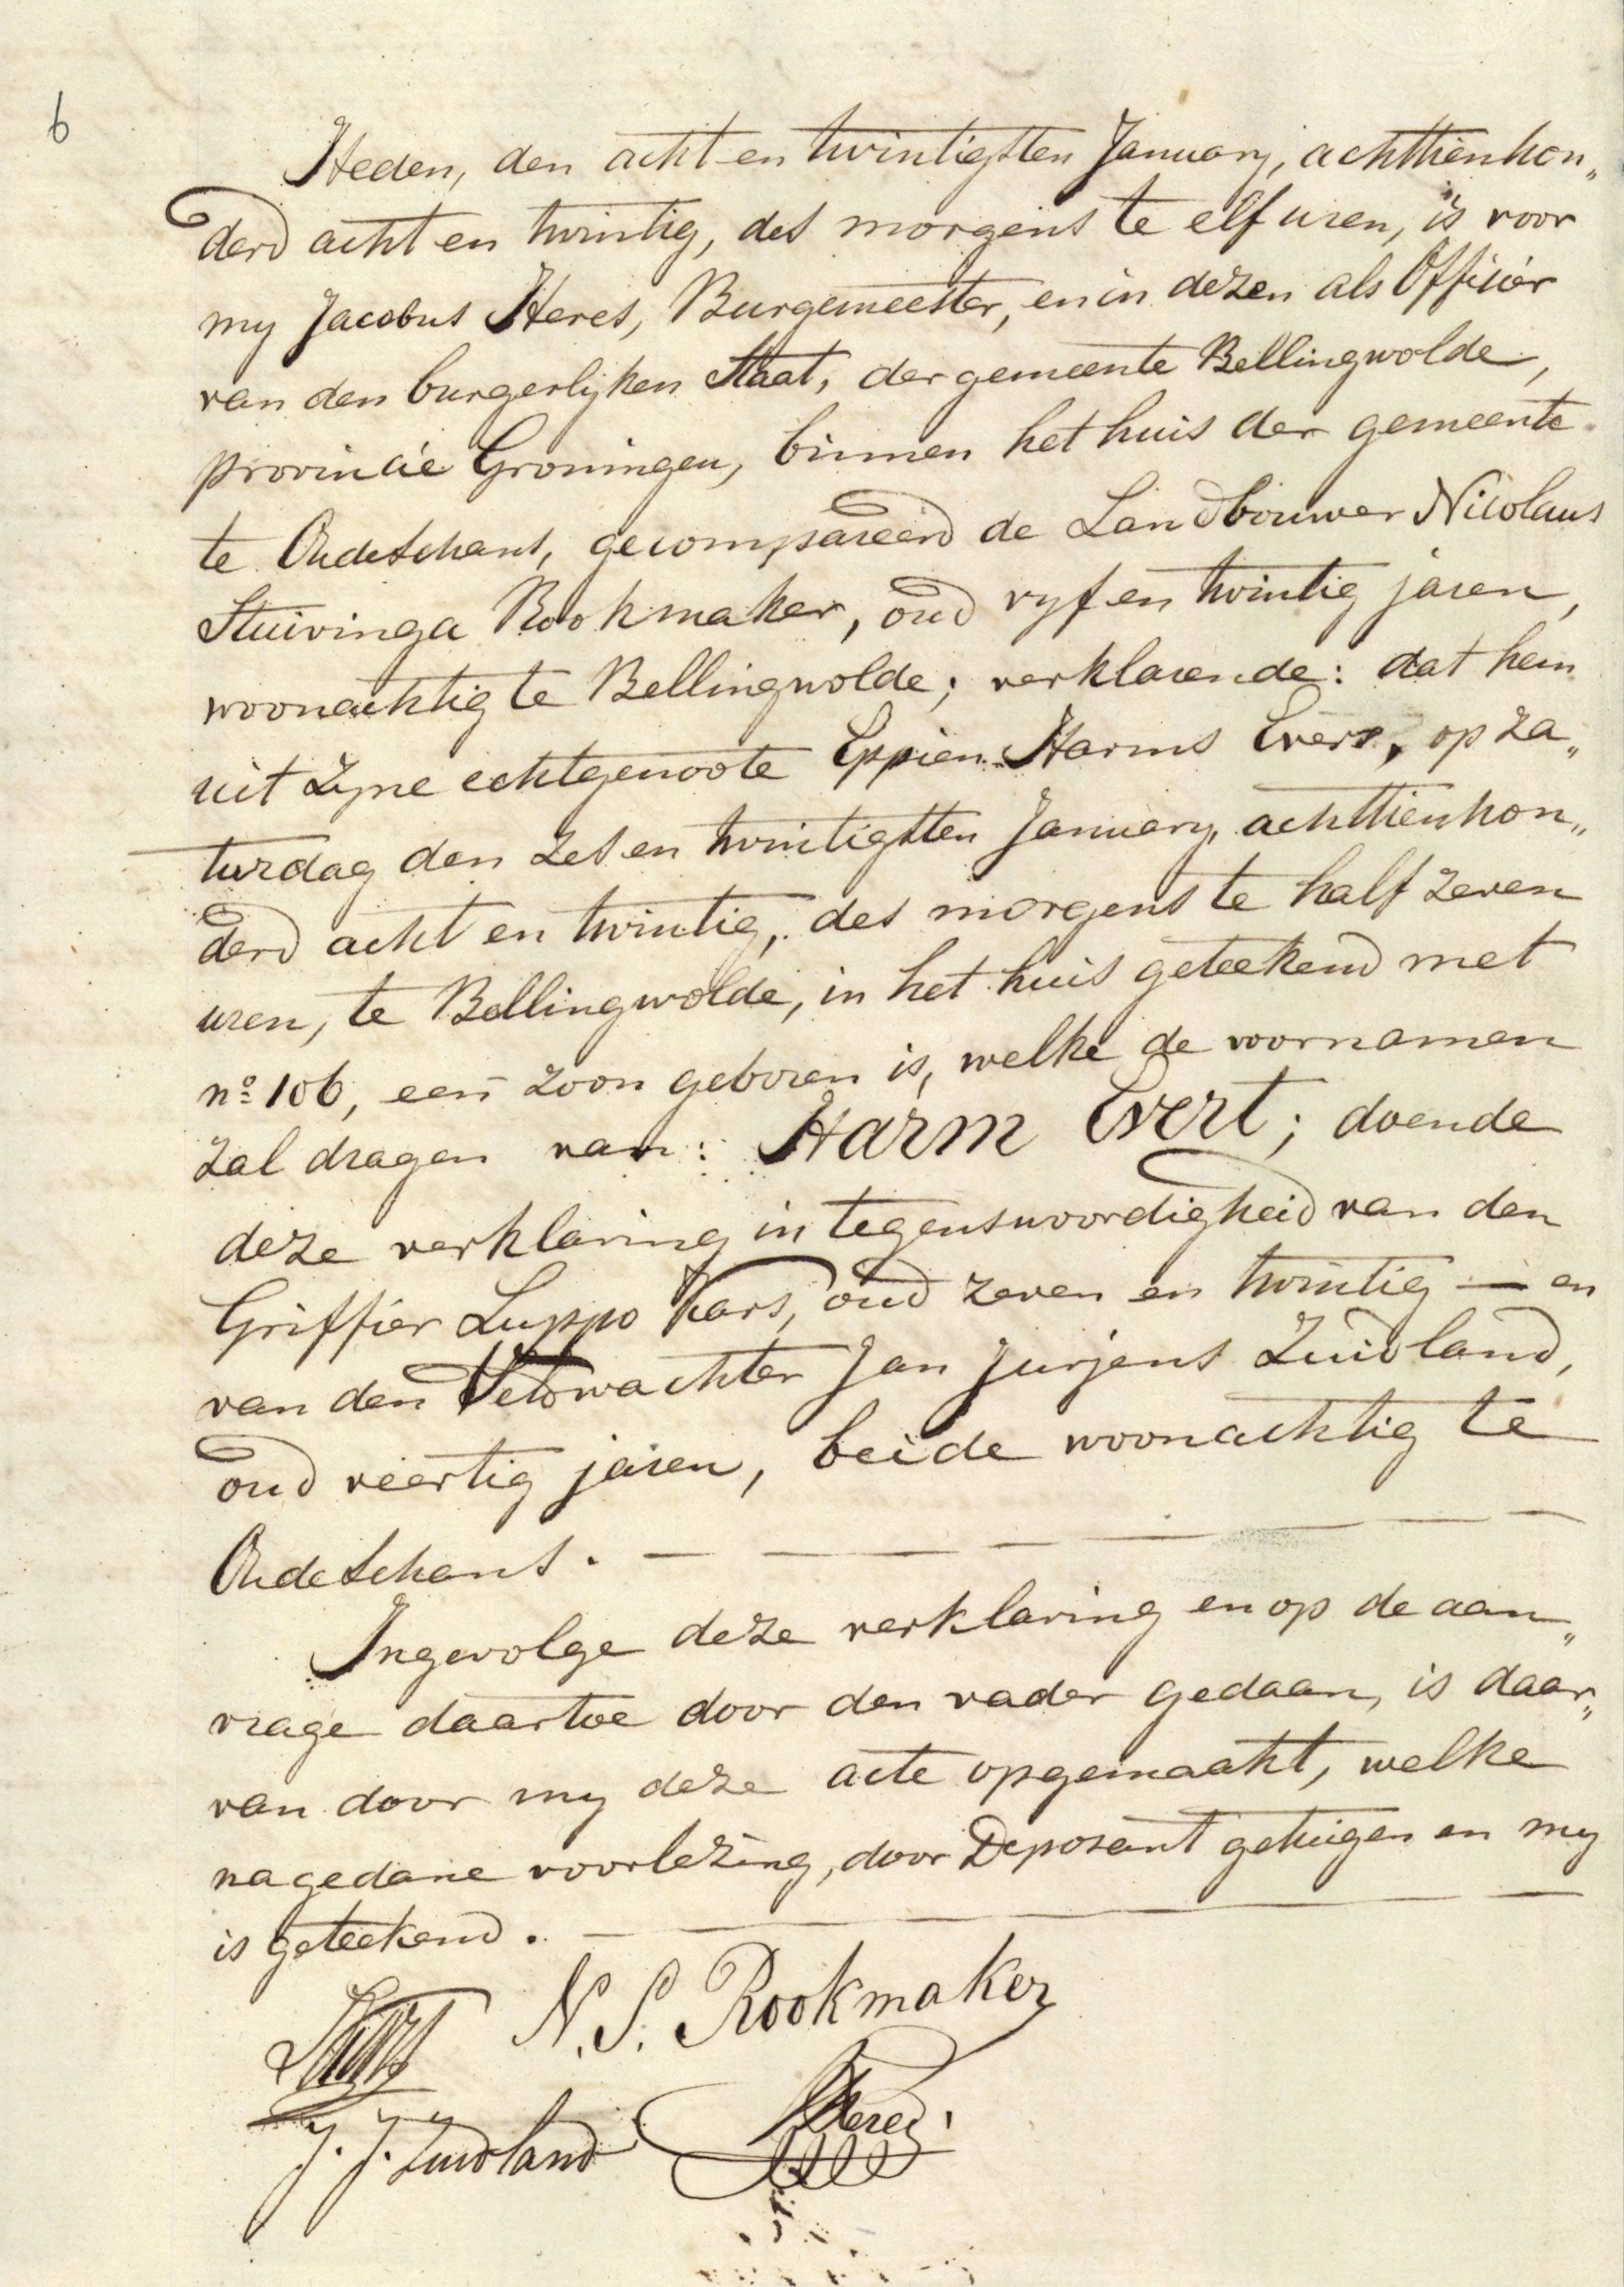 6
Heden, den acht en twintigsten January, achttienhon„
derd acht en twintig, des morgens te elf uren, is voor
my Jacobus Heres, Burgemeester, en in dezen als Officier
van den burgerlyken Staat, der gemeente Bellingwolde,
provincie Groningen, binnen het huis der gemeente
te Oudeschans, gecompareerd de Landbouwer Nicolaus
Stuivinga Rookmaker, oud vyf en twintig jaren,
woonachtig te Bellingwolde; verklarende: dat hem
uit zyne echtgenoote Eppien Harms Evers, op za„
turdag den zes en twintigsten January, achttienhon„
derd acht en twintig, des morgens te half zeven
uren, te Bellingwolde, in het huis geteekend met
no 106, een zoon geboren is, welke de voornamen
zal dragen van: Harm Evert; doende
deze verklaring in tegenswoordigheid van den
Griffier Luppo Kars, oud zeven en twintig — en
van den Veldwachter Jan Jurjens Zuidland,
oud veertig jaren, beide woonachtig te
Oudeschans. — — — — — —
Ingevolge deze verklaring en op de aan„
vrage daartoe door den vader gedaan, is daar„
van door my deze acte opgemaakt, welke
na gedane voorlezing, door Deposant getuigen en my
is geteekend. — — — —
N. S. Rookmaker
LKars
J. J. Zuidland
Heres